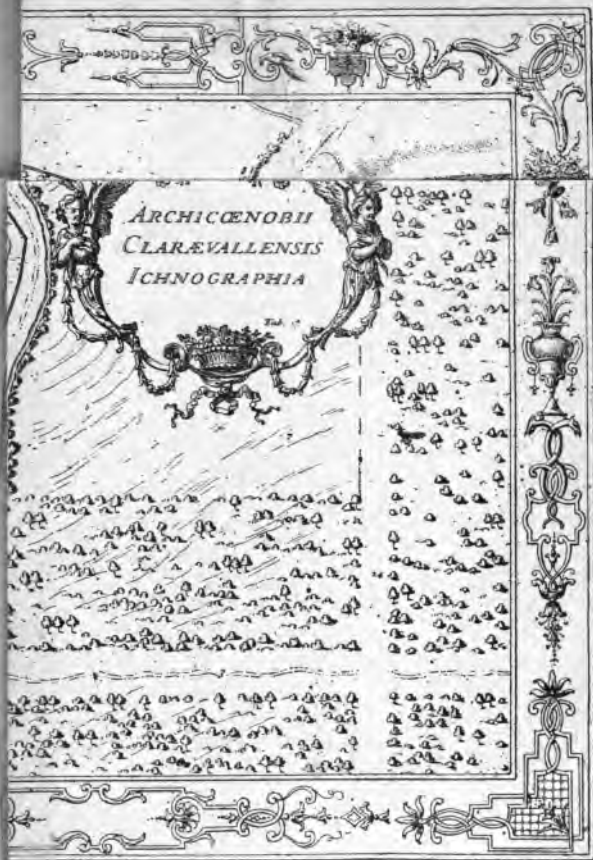 ARCHICŒNOBII
CLARÆVALLENSIS
ICHNOGRAPHIA
Tab.